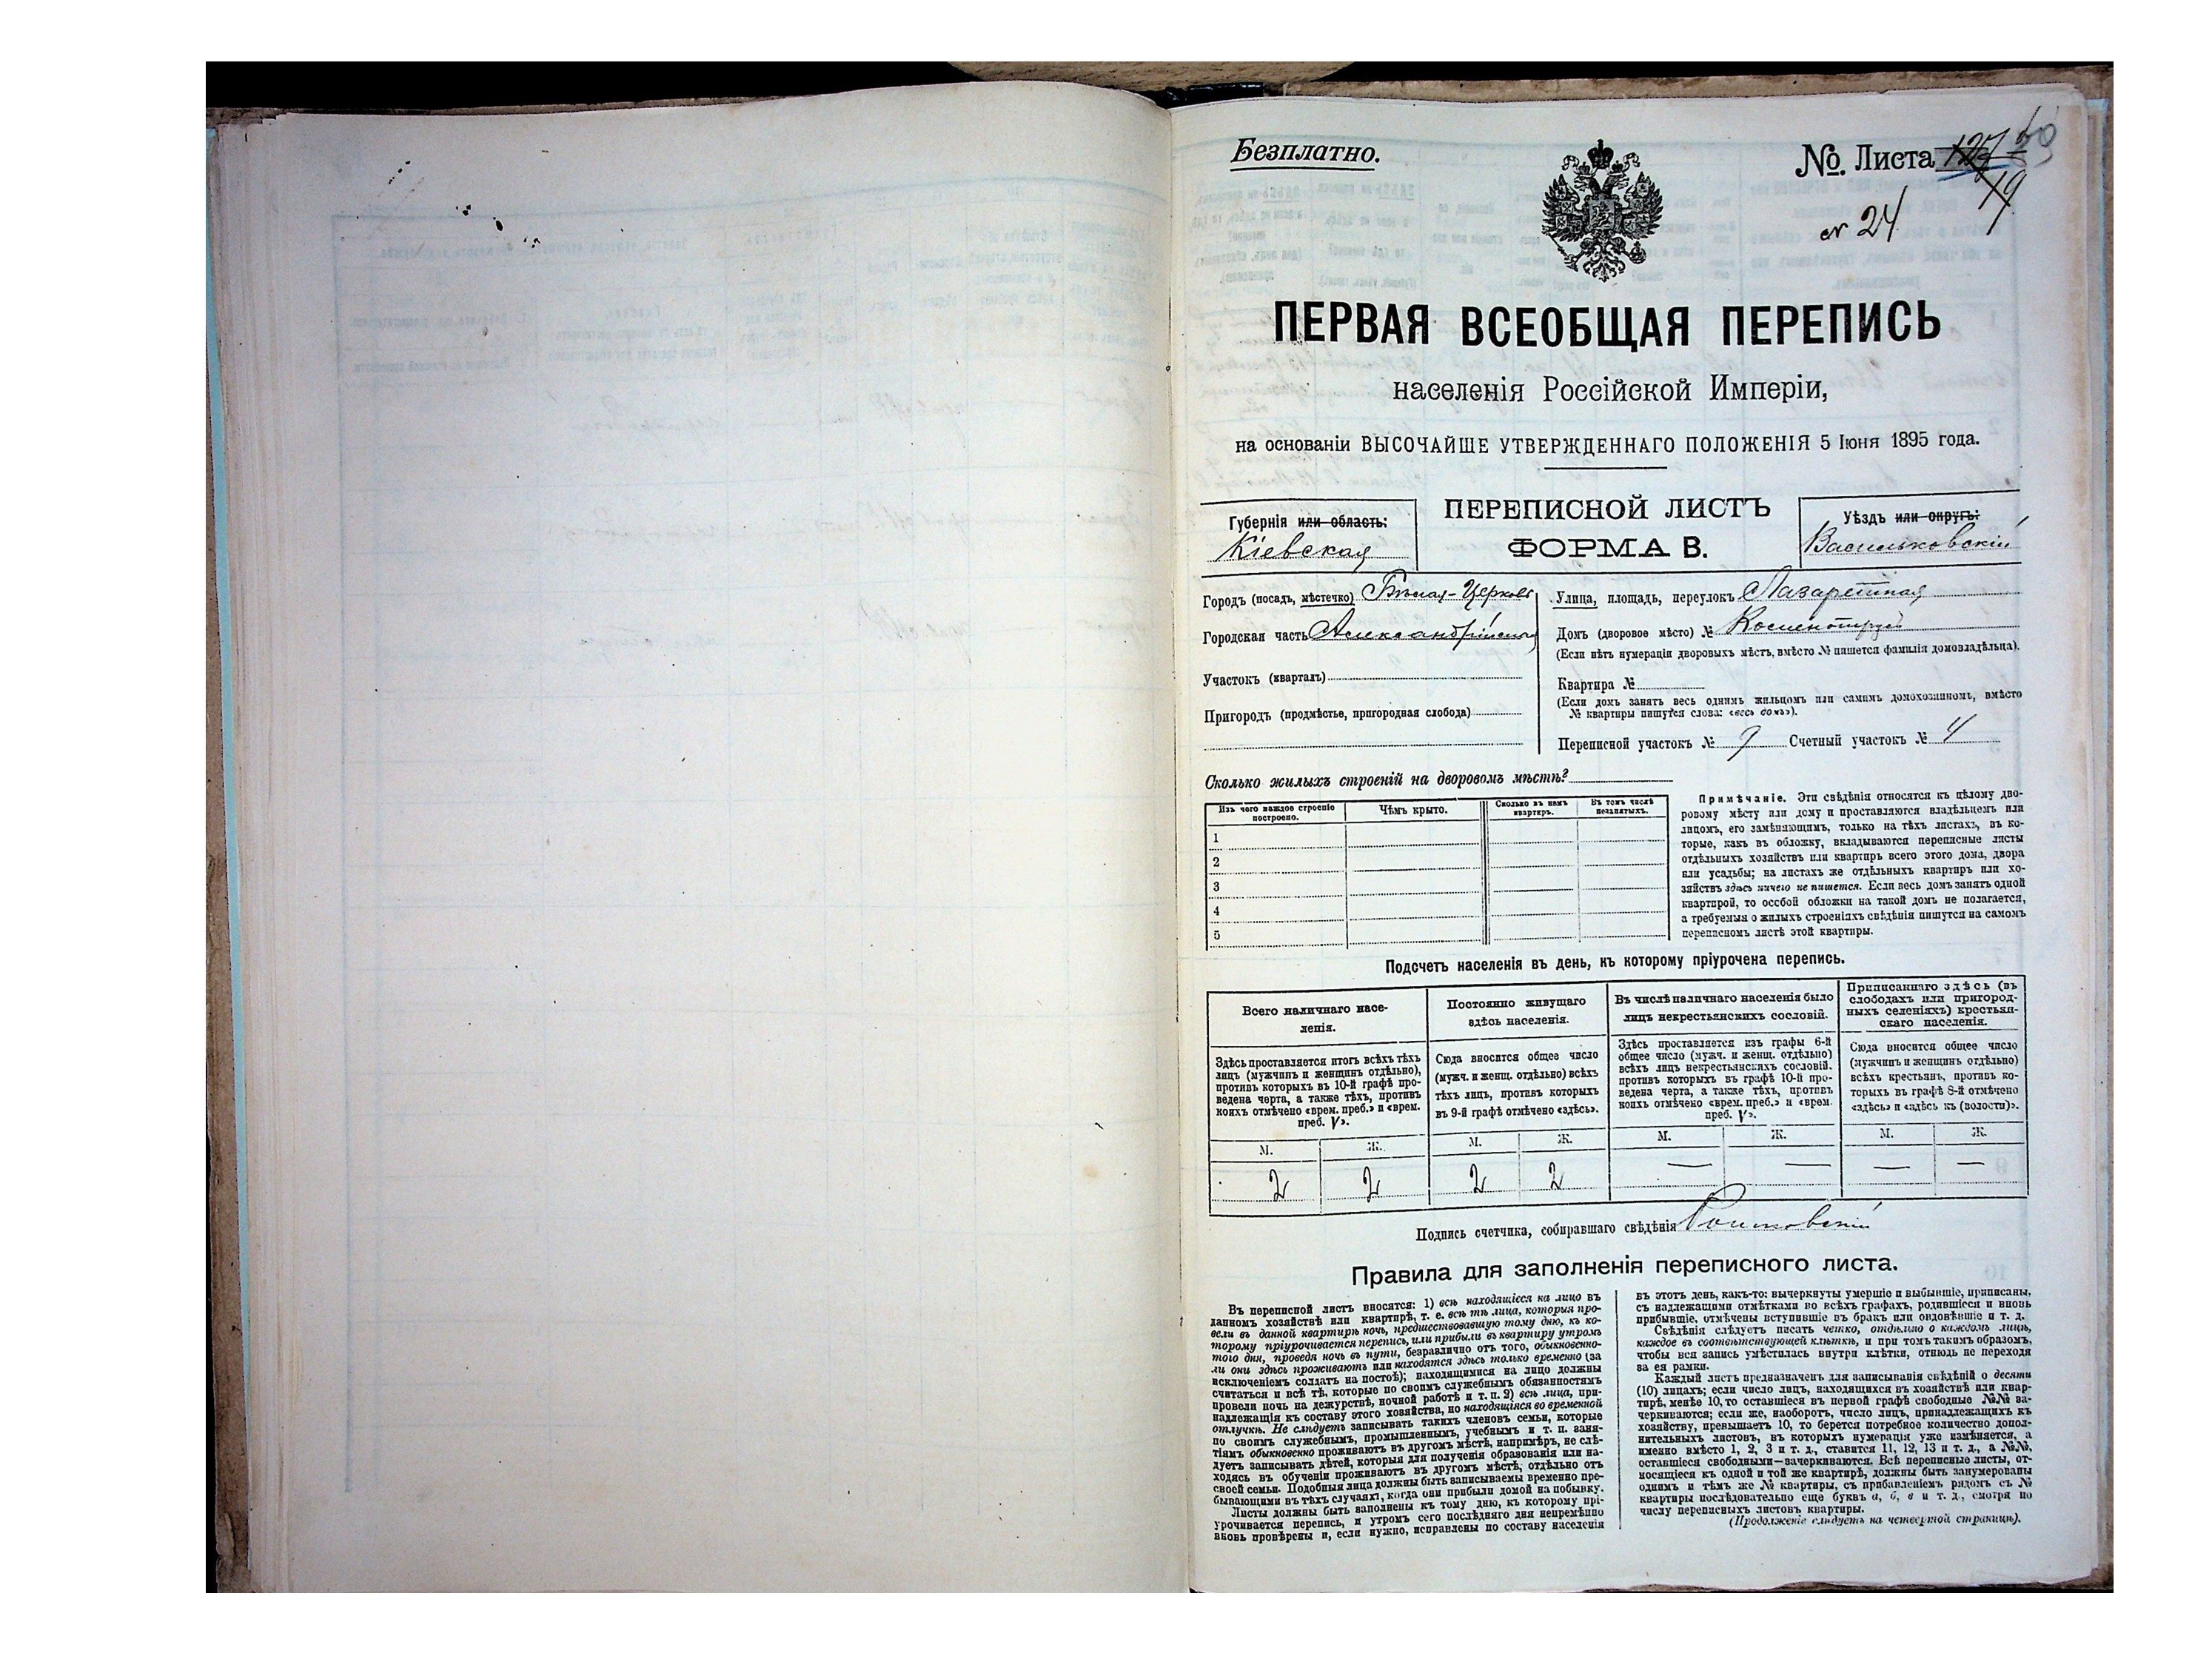 Безплатно.
№. Листа
24
19
ПЕРВАЯ ВСЕОБЩАЯ ПЕРЕПИСЬ
населенія Россійской Имперіи,
на основаніи ВЫСОЧАЙШЕ УТВЕРЖДЕННАГО ПОЛОЖЕНІЯ 5 Іюня 1895 года.
ПЕРЕПИСНОЙ ЛИСТЪ
ФОРМА В.
Губернія или область:
Кіевская
Уѣздъ или округъ:
Васильковскій
Городъ (посадъ, мѣстечко) Бѣлая-Церковь
Городская часть Александрійская
Участокъ (кварталъ)
Пригородъ (предмѣстье, пригородная слобода)
Улица, площадь, переулокъ Лазаретная
Домъ (дворовое мѣсто) №
(Если нѣтъ нумераціи дворовыхъ мѣстъ, вмѣсто № пишется фамилія домовладѣльца).
Квартира №
(Если домъ занятъ весь однимъ жильцомъ или самимъ домохозяиномъ, вмѣсто
№ квартиры пишутся слова: «весь домъ»).
Переписной участокъ № 9 Счетный участокъ № 4
Сколько жилыхъ строеній на дворовомъ мѣстѣ?
Изъ чего каждое строеніе
построено.
Чѣмъ крыто.
Сколько въ немъ
квартиръ.
Въ томъ числѣ
незанятыхъ.
1
2
3
4
5
Примѣчаніе. Эти свѣдѣнія относятся къ цѣлому дво-
ровому мѣсту или дому и проставляются владѣльцемъ или
лицомъ, его замѣняющимъ, только на тѣхъ листахъ, въ ко-
торые, какъ въ обложку, вкладываются переписные листы
отдѣльныхъ хозяйствъ или квартиръ всего этого дома, двора
или усадьбы; на листахъ же отдѣльныхъ квартиръ или хо-
зяйствъ здѣсь ничего не пишется. Если весь домъ занятъ одной
квартирой, то особой обложки на такой домъ не полагается,
а требуемыя о жилыхъ строеніяхъ свѣдѣнія пишутся на самомъ
переписномъ листѣ этой квартиры.
Подсчетъ населенія въ день, къ которому пріурочена перепись.
Всего наличнаго насе-
ленія.
Здѣсь проставляется итогъ всѣхъ тѣхъ
лицъ (мужчинъ и женщинъ отдѣльно),
противъ которыхъ въ 10-й графѣ про-
ведена черта, а также тѣхъ, противъ
коихъ отмѣчено «врем. преб.» и «врем.
преб. V».
Постоянно живущаго
здѣсь населенія.
Сюда вносится общее число
(мужч. и женщ. отдѣльно) всѣхъ
тѣхъ лицъ, противъ которыхъ
въ 9-й графѣ отмѣчено «здѣсь».
Въ числѣ наличнаго населенія было
лицъ некрестьянскихъ сословій.
Здѣсь проставляется изъ графы 6-й
общее число (мужч. и женщ. отдѣльно)
всѣхъ лицъ некрестьянскихъ сословій.
противъ которыхъ въ графѣ 10-й про-
ведена черта, а также тѣхъ, противъ
коихъ отмѣчено «врем. преб.» и «врем.
преб. V».
Приписаннаго здѣсь (въ
слободахъ или пригород-
ныхъ селеніяхъ) крестьян-
скаго населенія.
Сюда вносится общее число
(мужчинъ и женщинъ отдѣльно)
всѣхъ крестьянъ, противъ ко-
торыхъ въ графѣ 8-й отмѣчено
«здѣсь» и «здѣсь къ (волости)».
М. Ж. М. Ж. М. Ж. М. Ж.
2 2 2 2 — — — —
Подпись счетчика, собиравшаго свѣдѣнія
Правила для заполненія переписного листа.
Въ переписной листъ вносятся: 1) всѣ находящіеся на лицо въ
данномъ хозяйствѣ или квартирѣ, т. е. всѣ тѣ лица, которыя про-
вели въ данной квартирѣ ночь, предшествовавшую тому дню, къ ко-
торому пріурочивается перепись, или прибыли въ квартиру утромъ
того дня, проведя ночь въ пути, безразлично отъ того, обыкновенно-
ли они здѣсь проживаютъ или находятся здѣсь только временно (за
исключеніемъ солдатъ на постоѣ); находящимися на лицо должны
считаться и всѣ тѣ, которые по своимъ служебнымъ обязанностямъ
провели ночь на дежурствѣ, ночной работѣ и т. п. 2) всѣ лица, при-
надлежащія къ составу этого хозяйства, но находящіяся во временной
отлучкѣ. Не слѣдуетъ записывать такихъ членовъ семьи, которые
по своимъ служебнымъ, промышленнымъ, учебнымъ и т. п. заня-
тіямъ обыкновенно проживаютъ въ другомъ мѣстѣ, напримѣръ, не слѣ-
дуетъ записывать дѣтей, которыя для полученія образованія или на-
ходясь въ обученіи проживаютъ въ другомъ мѣстѣ, отдѣльно отъ
своей семьи. Подобныя лица должны быть записываемы временно пре-
бывающими въ тѣхъ случаяхъ, когда они прибыли домой на побывку.
Листы должны быть заполнены къ тому дню, къ которому прі-
урочивается перепись, и утромъ сего послѣдняго дня непремѣнно
вновь провѣрены и, если нужно, исправлены по составу населенія
въ этотъ день, какъ-то: вычеркнуты умершіе и выбывшіе, приписаны,
съ надлежащими отмѣтками во всѣхъ графахъ, родившіеся и вновь
прибывшіе, отмѣчены вступившіе въ бракъ или овдовѣвшіе и т. д.
Свѣдѣнія слѣдуетъ писать четко, отдѣльно о каждомъ лицѣ,
каждое въ соотвѣтствующей клѣткѣ, и при томъ такимъ образомъ,
чтобы вся запись умѣстилась внутри клѣтки, отнюдь не переходя
за ея рамки.
Каждый листъ предназначенъ для записыванія свѣдѣній о десяти
(10) лицахъ; если число лицъ, находящихся въ хозяйствѣ или квар-
тирѣ, менѣе 10, то оставшіеся въ первой графѣ свободные №№ за-
черкиваются; если же, наоборотъ, число лицъ, принадлежащихъ къ
хозяйству, превышаетъ 10, то берется потребное количество допол-
нительныхъ листовъ, въ которыхъ нумерація уже измѣняется, а
именно вмѣсто 1, 2, 3 и т. д., ставится 11, 12, 13 и т. д., а №№,
оставшіеся свободными—зачеркиваются. Всѣ переписные листы, от-
носящіеся къ одной и той же квартирѣ, должны быть занумерованы
однимъ и тѣмъ же № квартиры, съ прибавленіемъ рядомъ съ №
квартиры послѣдовательно еще буквъ а, б, в и т. д., смотря по
числу переписныхъ листовъ квартиры.
(Продолженіе слѣдуетъ на четвертой страницѣ).